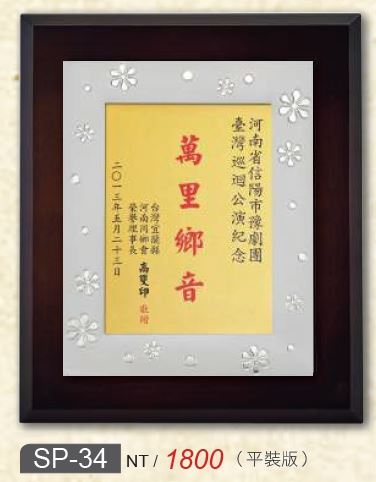 河南省信陽市豫劇團
臺灣巡迴公演紀念
萬里鄉音
台灣宜蘭縣
河南同鄉會
榮譽理事長
高雙印 敬贈
二〇一三年五月二十三日
SP-34 NT / 1800 (平裝版)